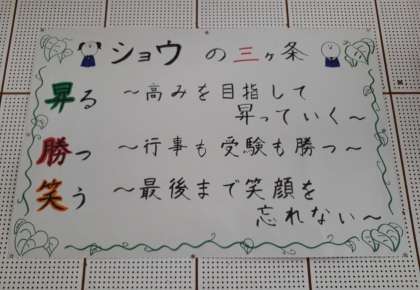 ショウの三ヶ条
昇る ～高みを目指して
昇っていく～
勝つ ～行事も受験も勝つ～
笑う ～最後まで笑顔を
忘れない～